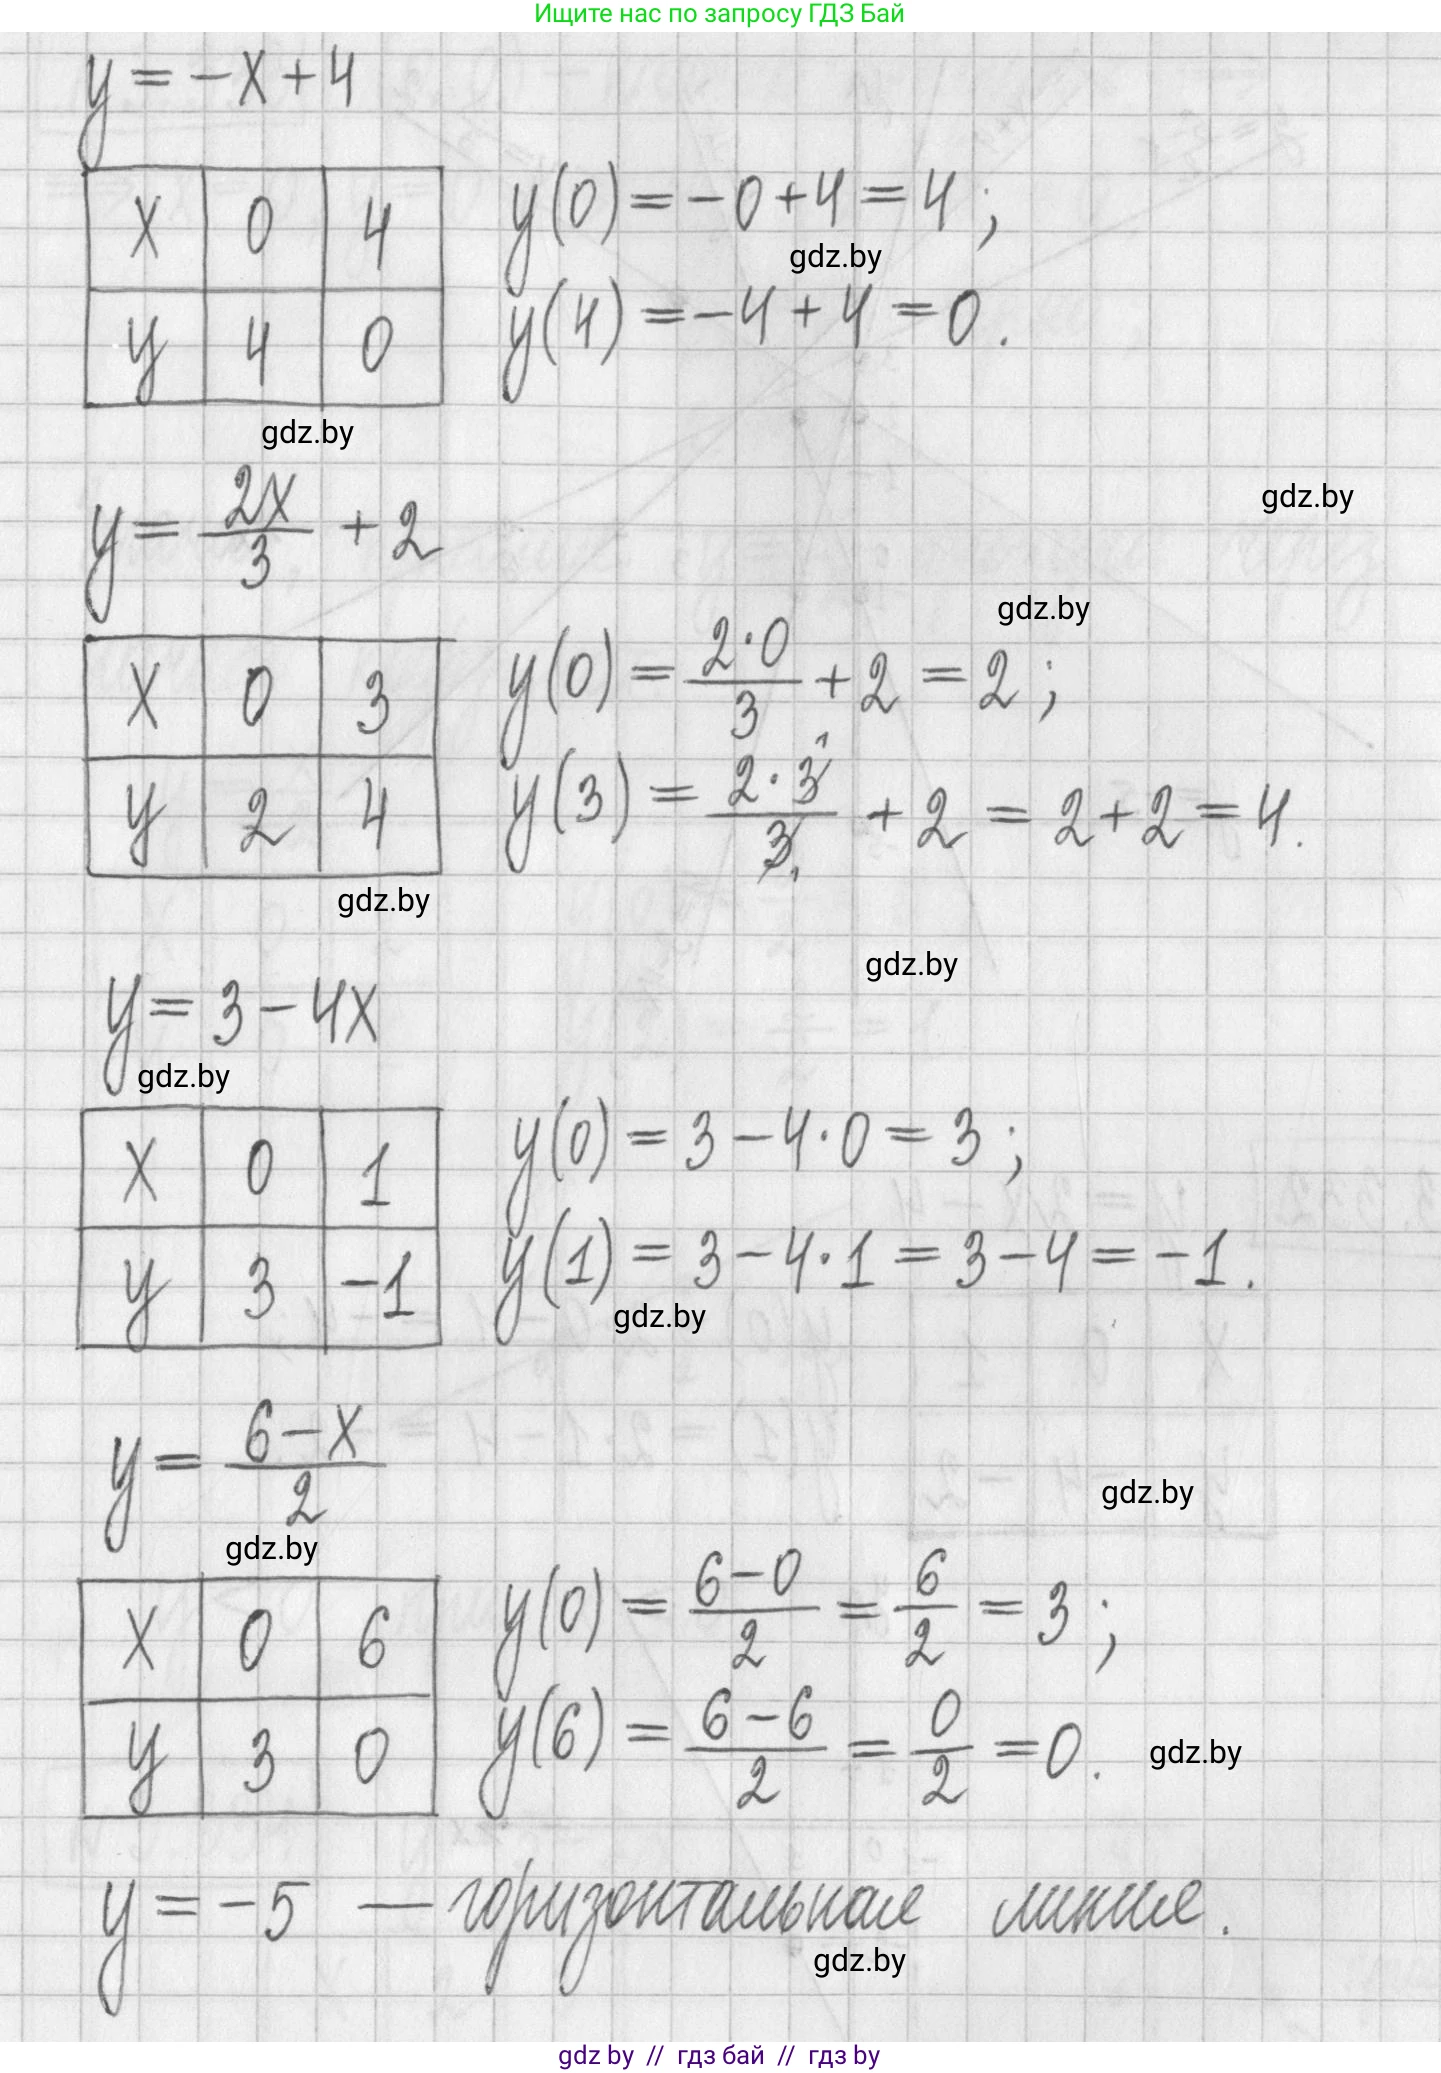 Ищите нас по запросу ГДЗ Бай
y = -x + 4
x 0 4
y(0) = -0 + 4 = 4 ;
gdz.by
y 4 0
y(4) = -4 + 4 = 0 .
gdz.by
gdz.by
y = 2x/3 + 2
gdz.by
x 0 3
y(0) = 2·0/3 + 2 = 2 ;
y 2 4
y(3) = 2·3¹/3₁ + 2 = 2 + 2 = 4 .
gdz.by
gdz.by
y = 3 - 4x
gdz.by
x 0 1
y(0) = 3 - 4·0 = 3 ;
y 3 -1
y(1) = 3 - 4·1 = 3 - 4 = -1 .
gdz.by
y = 6-x/2
gdz.by
gdz.by
x 0 6
y(0) = 6-0/2 = 6/2 = 3 ;
y 3 0
y(6) = 6-6/2 = 0/2 = 0 .
gdz.by
y = -5 — горизонтальная линия .
gdz.by
gdz by // гдз бай // гдз by